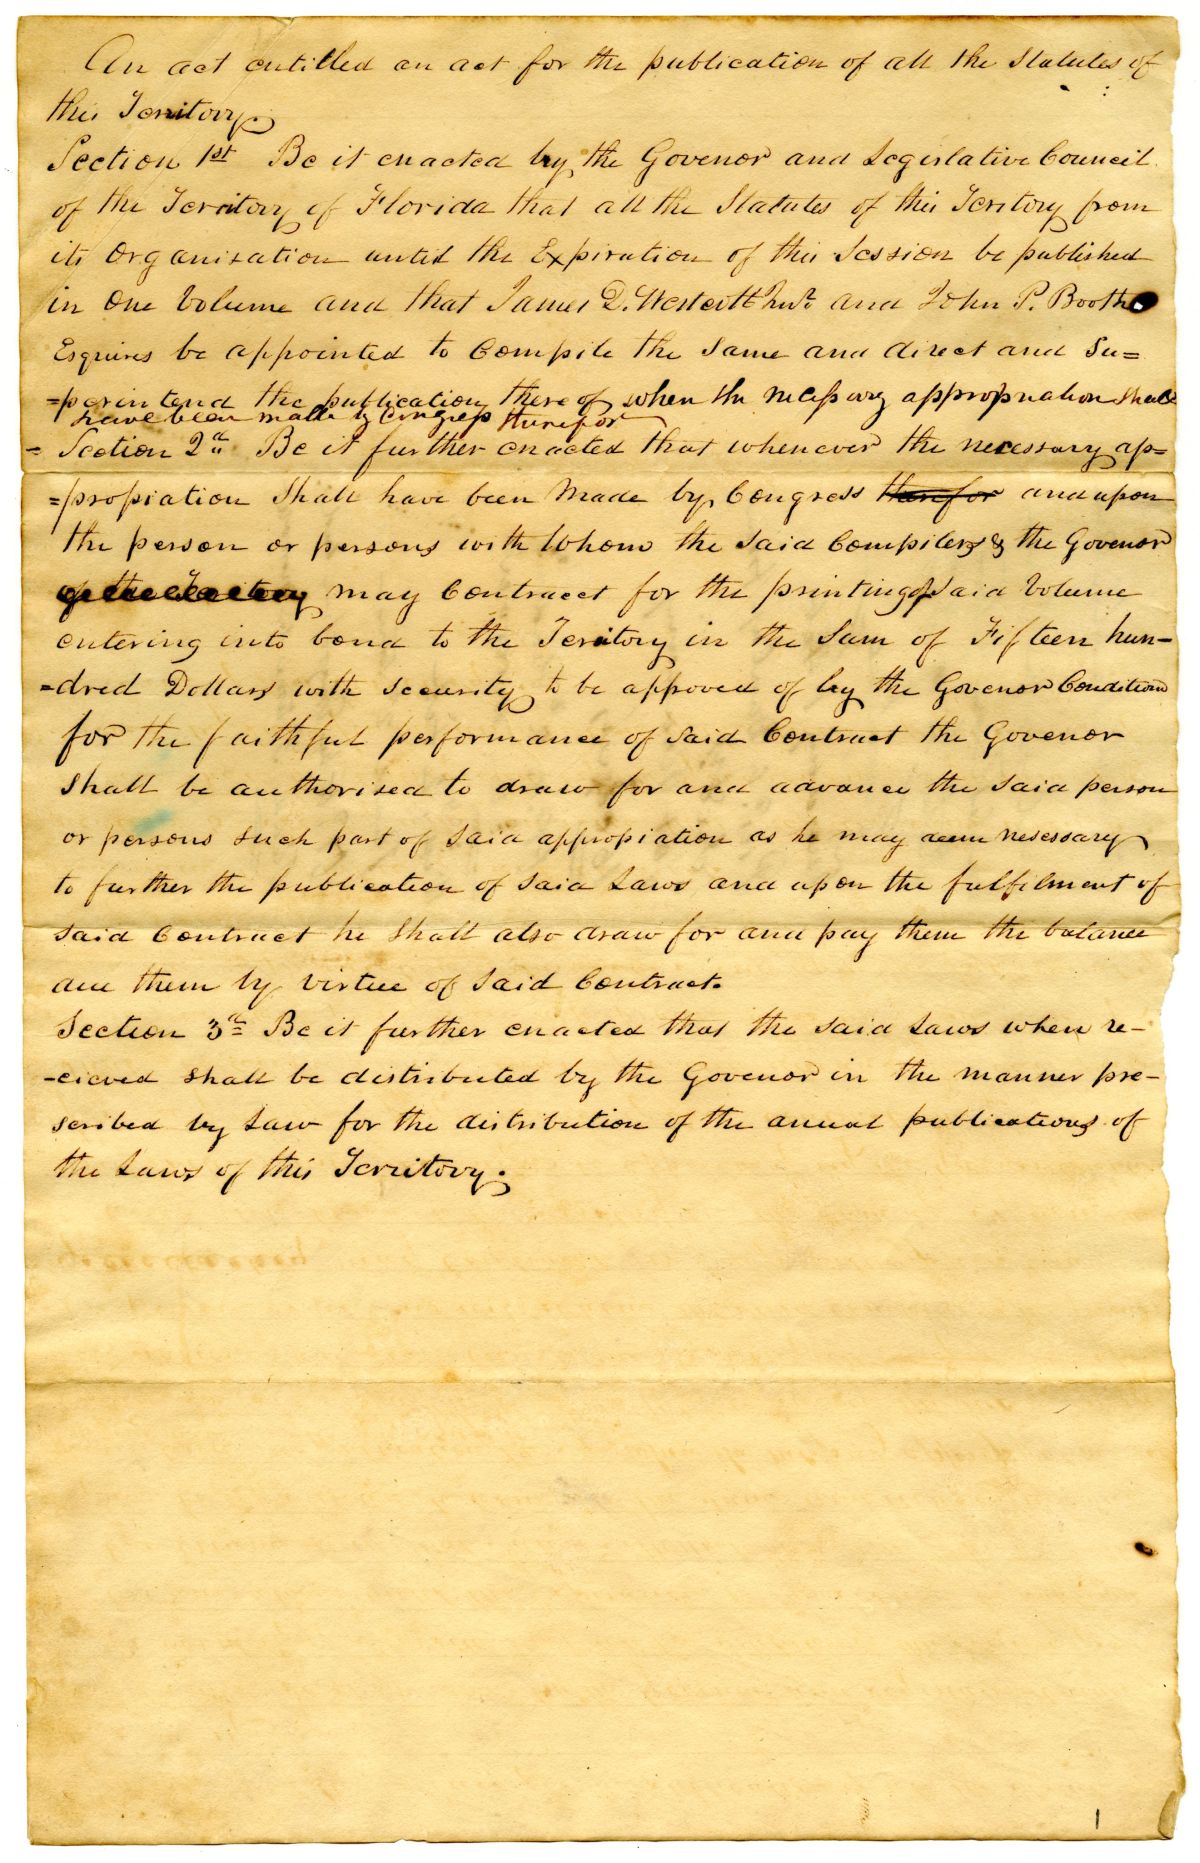 An act entitled an act for the publication of all the Statutes of
this Territory.
Section 1st Be it enacted by the Govenor and Legislative Council
of the Territory of Florida that all the Statutes of this Teritory from
its Organisation untill the Expiration of this Session be published
in one Volume and that James D. Westcott Junr and John P. Booth
Esquires be appointed to Compile the Same and direct and Su=
=perintend the publication there of when the necessary appropriation shall
have been made by Congress therefor
- Section 2d Be it further enacted that whenever the necessary ap=
=propiation Shall have been Made by Congress therefor and upon
the person or persons with Whom the Said Compilers & the Govenor
of the Teritory may Contract for the printing of Said Volume
entering into bond to the Teritory in the Sum of Fifteen hun-
=dred Dollars with security to be approved of by the Govenor Condition
for the faithful performance of Said Contract the Govenor
Shall be authorised to draw for and advance the said person
or persons such part of Said appropiation as he may deem nesessary
to further the publication of Said Laws and upon the fulfilment of
Said Contract he Shall also draw for and pay them the balance
due them by virtue of Said Contract.
Section 3d Be it further enacted that the Said Laws when re-
-cieved shall be distributed by the Govenor in the manner pre-
scribed by Law for the distribution of the annual publications of
the Laws of this Territory.
1